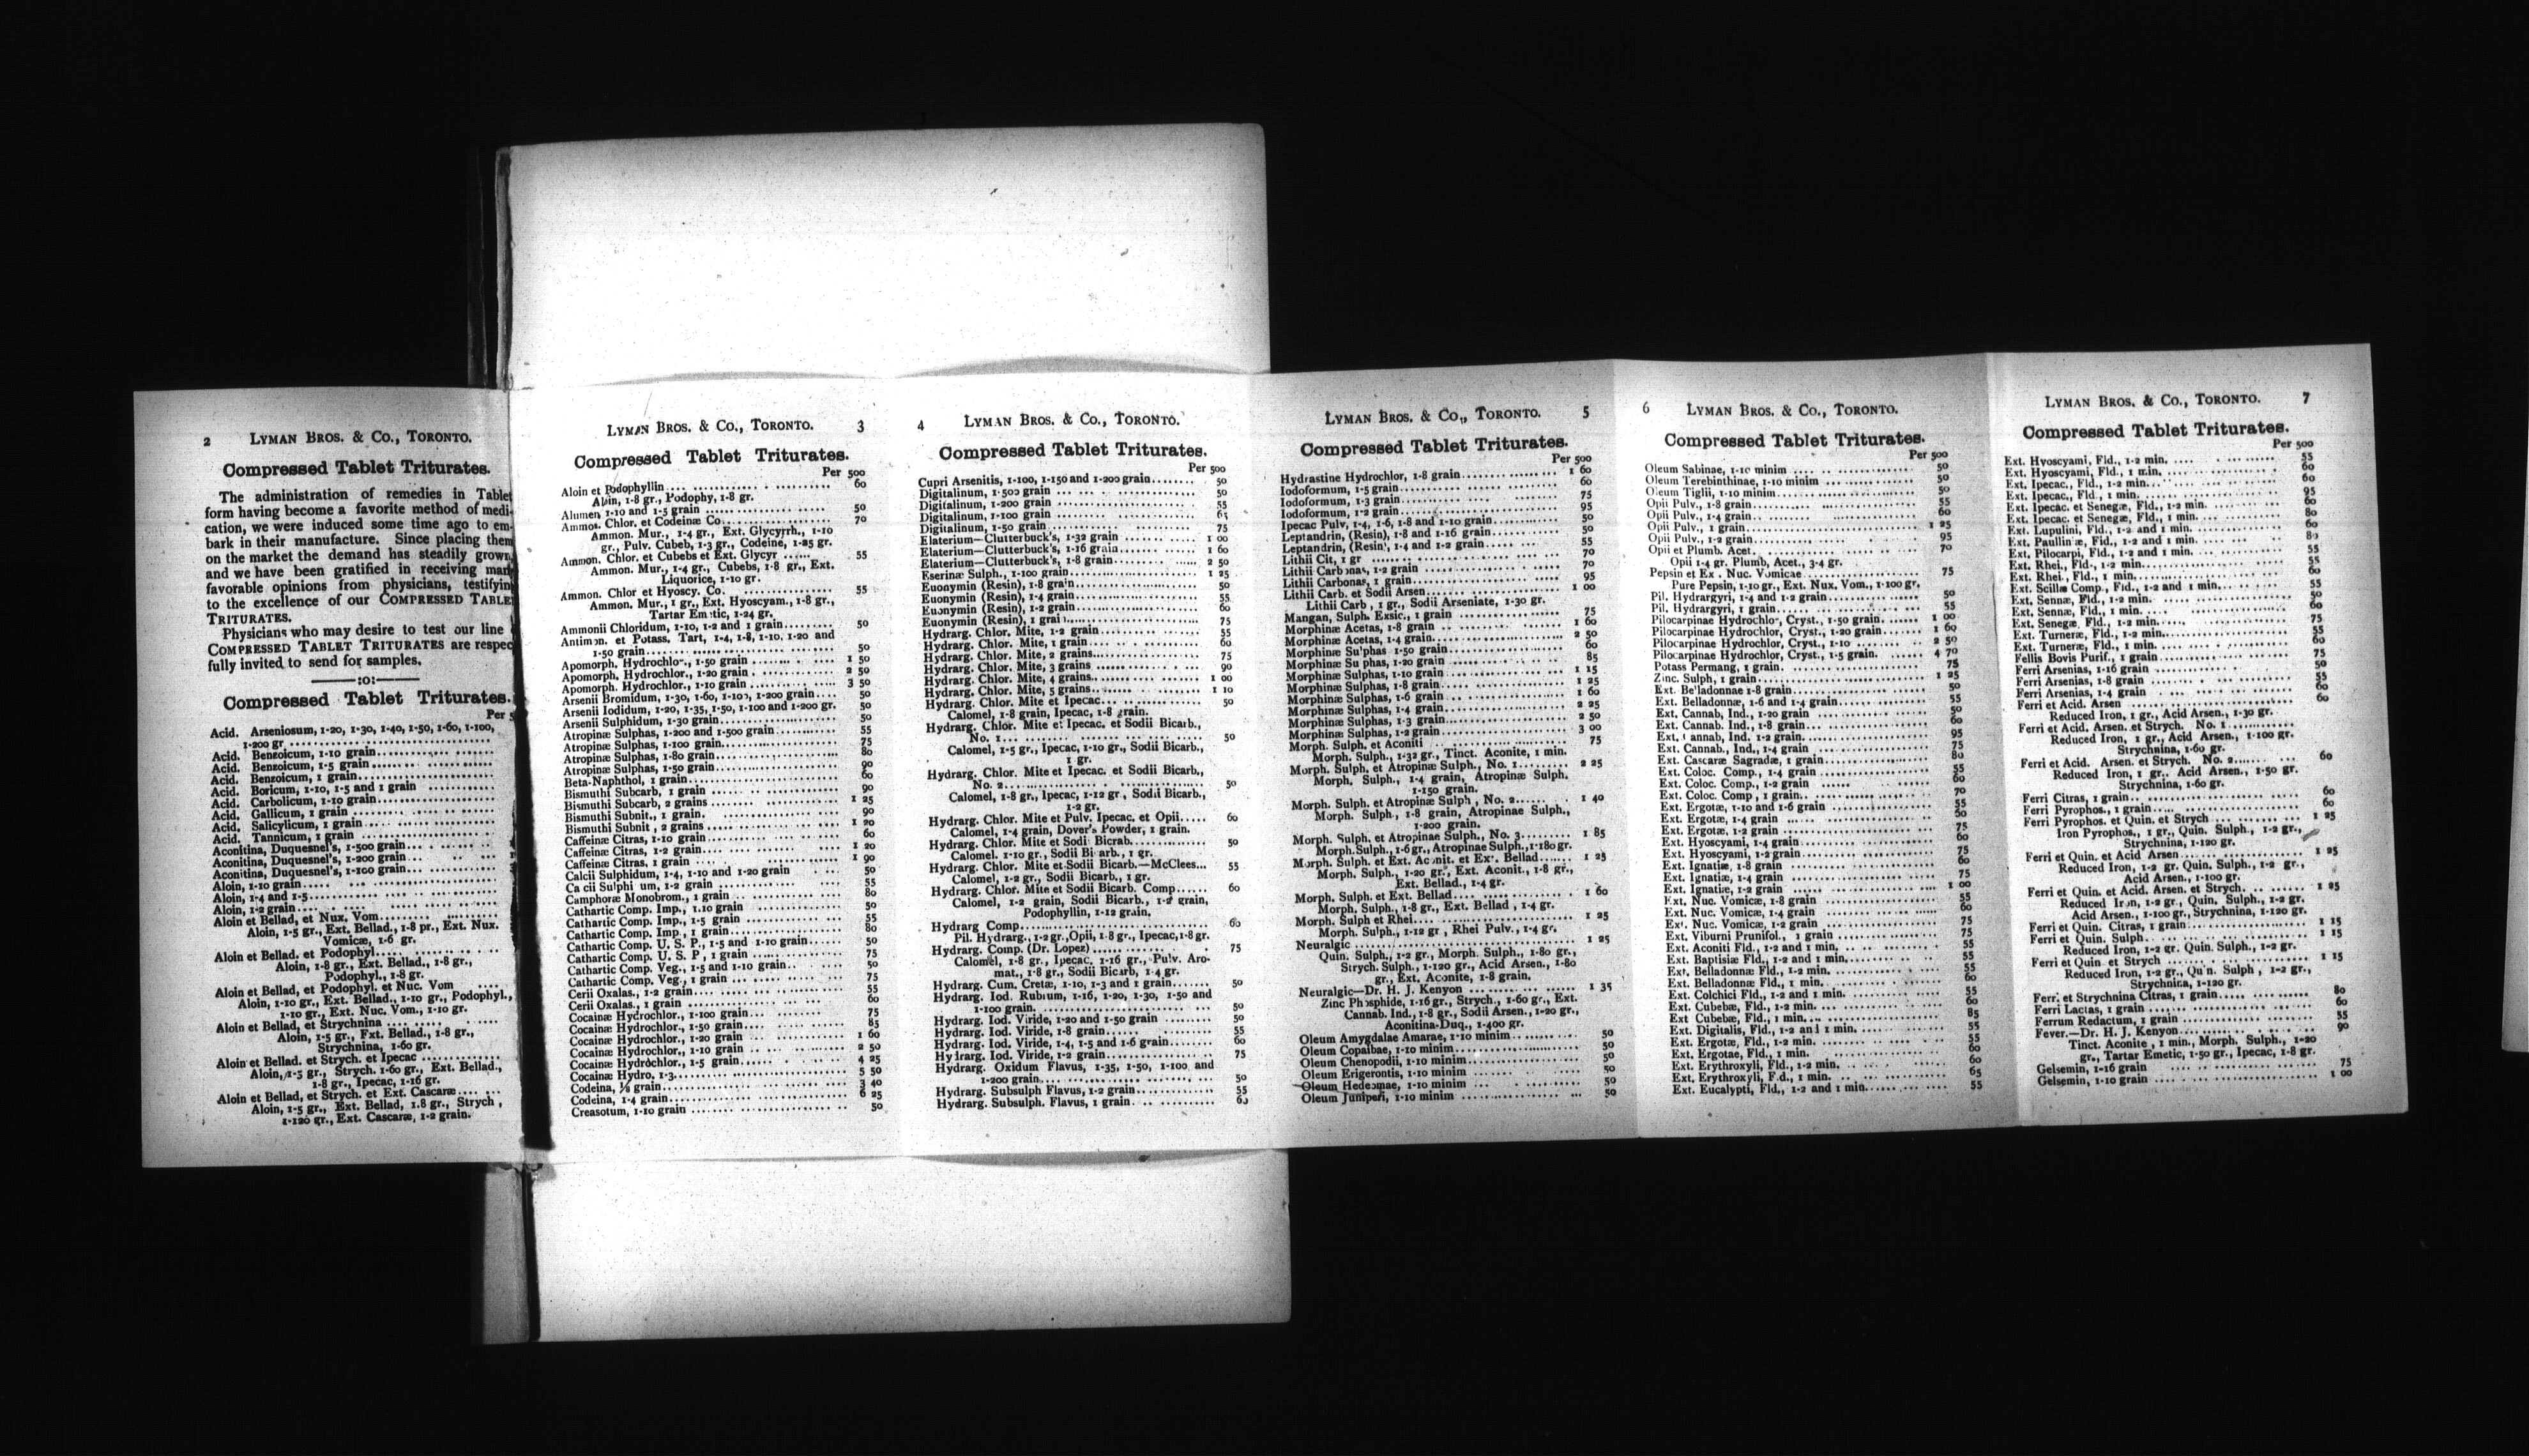 2 LYMAN BROS. & CO., TORONTO.
Compressed Tablet Triturates.
The administration of remedies in Tablet
form having become a favorite method of medi-
cation, we were induced some time ago to em-
bark in their manufacture. Since placing them
on the market the demand has steadily grown,
and we have been gratified in receiving
favorable opinions from physicians,
to the excellence of our COMPRESSED
TRITURATES.
Physicians who may desire to test our line
COMPRESSED TABLET TRITURATES are
fully invited to send for samples.
:o:
Compressed Tablet Triturates.
Per
Acid. Arseniosum, 1-20, 1-30, 1-40, 1-50, 1-60, 1-100,
1-200 gr
Acid. Benzoicum, 1-10 grain
Acid. Benzoicum, 1-5 grain
Acid. Benzoicum, 1 grain
Acid. Boricum, 1-10, 1-5 and 1 grain
Acid. Carbolicum, 1-10 grain
Acid. Gallicum, 1 grain
Acid. Salicylicum, 1 grain
Acid. Tannicum, 1 grain
Aconitina, Duquesnel's, 1-500 grain
Aconitina, Duquesnel's, 1-200 grain
Aconitina, Duquesnel's, 1-100 grain
Aloin, 1-10 grain
Aloin, 1-4 and 1-5
Aloin, 1-2 grain
Aloin et Bellad, et Nux. Vom
Aloin, 1-5 gr., Ext. Bellad., 1-8 pr., Ext. Nux.
Vomicæ, 1-6 gr.
Aloin et Bellad. et Podophyl
Aloin, 1-8 gr., Ext. Bellad., 1-8 gr.,
Podophyl., 1-8 gr.
Aloin et Bellad, et Podophyl. et Nuc. Vom
Aloin, 1-10 gr., Ext. Bellad., 1-10 gr., Podophyl.,
1-10 gr., Ext. Nuc. Vom., 1-10 gr.
Aloin et Bellad, et Strychnina
Aloin, 1-5 gr., Fxt. Bellad., 1-8 gr.,
Strychnina, 1-60 gr.
Aloin et Bellad. et Strych. et Ipecac
Aloin, 1-5 gr., Strych. 1-60 gr., Ext. Bellad.,
1-8 gr., Ipecac, 1-16 gr.
Aloin et Bellad, et Strych. et Ext. Cascaræ
Aloin, 1-5 gr., Ext. Bellad, 1.8 gr., Strych,
1-120 gr., Ext. Cascaræ, 1-2 grain.
LYMAN BROS. & CO., TORONTO. 3
Compressed Tablet Triturates.
Per 500
Aloin et Podophyllin 60
Aloin, 1-8 gr., Podophy, 1-8 gr.
Alumen 1-10 and 1-5 grain 50
Ammon. Chlor. et Codeinæ Co. 70
Ammon. Mur., 1-4 gr., Ext. Glycyrrh., 1-10
gr., Pulv. Cubeb, 1-3 gr., Codeine, 1-25 gr.
Ammon. Chlor. et Cubebs et Ext. Glycyr 55
Ammon. Mur., 1-4 gr., Cubebs, 1-8 gr., Ext.
Liquorice, 1-10 gr.
Ammon. Chlor et Hyoscy. Co. 55
Ammon. Mur., 1 gr., Ext. Hyoscyam., 1-8 gr.,
Tartar Emetic, 1-24 gr.
Ammonii Chloridum, 1-10, 1-2 and 1 grain 50
Antimon. et Potass. Tart, 1-4, 1-8, 1-10, 1-20 and
1-50 grain 50
Apomorph. Hydrochlor., 1-50 grain 1 50
Apomorph. Hydrochlor., 1-20 grain 2 50
Apomorph. Hydrochlor., 1-10 grain 3 50
Arsenii Bromidum, 1-30, 1-60, 1-100, 1-200 grain 50
Arsenii Iodidum, 1-20, 1-35, 1-50, 1-100 and 1-200 gr. 50
Arsenii Sulphidum, 1-30 grain 50
Atropinæ Sulphas, 1-200 and 1-500 grain 55
Atropinæ Sulphas, 1-100 grain 75
Atropinæ Sulphas, 1-80 grain 80
Atropinæ Sulphas, 1-50 grain 90
Beta-Naphthol, 1 grain 60
Bismuthi Subcarb, 1 grain 90
Bismuthi Subcarb, 2 grains 1 25
Bismuthi Subnit., 1 grain. 90
Bismuthi Subnit, 2 grains 1 20
Caffeinæ Citras, 1-10 grain 60
Caffeinæ Citras, 1-2 grain 1 20
Caffeinæ Citras, 1 grain 1 90
Calcii Sulphidum, 1-4, 1-10 and 1-20 grain 50
Ca cii Sulphi um, 1-2 grain 55
Camphoræ Monobrom., 1 grain 80
Cathartic Comp. Imp., 1.10 grain 50
Cathartic Comp. Imp., 1-5 grain 55
Cathartic Comp. Imp, 1 grain 80
Cathartic Comp. U. S. P., 1-5 and 1-10 grain 50
Cathartic Comp. U. S. P, 1 grain 75
Cathartic Comp. Veg., 1-5 and 1-10 grain 50
Cathartic Comp. Veg., 1 grain 75
Cerii Oxalas., 1-2 grain 55
Cerii Oxalas., 1 grain 60
Cocainæ Hydrochlor., 1-100 grain 75
Cocainæ Hydrochlor., 1-50 grain 85
Cocainæ Hydrochlor., 1-20 grain 1 60
Cocainæ Hydrochlor., 1-10 grain 2 50
Cocainæ Hydrochlor., 1-5 grain 4 25
Cocainæ Hydro. 1-3 5 50
Codeina, 1/8 grain 3 40
Codeina, 1-4 grain 6 25
Creasotum, 1-10 grain 50
4 LYMAN BROS. & CO., TORONTO.
Compressed Tablet Triturates.
Per 500
Cupri Arsenitis, 1-100, 1-150 and 1-200 grain 50
Digitalinum, 1-500 grain 50
Digitalinum, 1-200 grain 55
Digitalinum, 1-100 grain
Digitalinum, 1-50 grain 75
Elaterium—Clutterbuck's, 1-32 grain 1 00
Elaterium—Clutterbuck's, 1-16 grain 1 60
Elaterium—Clutterbuck's, 1-8 grain 2 50
Eserinæ Sulph., 1-100 grain 1 25
Euonymin (Resin), 1-8 grain 50
Euonymin (Resin), 1-4 grain 55
Euonymin (Resin), 1-2 grain 60
Euonymin (Resin), 1 grain 75
Hydrarg. Chlor. Mite, 1-2 grain 55
Hydrarg. Chlor. Mite, 1 grain 60
Hydrarg. Chlor. Mite, 2 grains 75
Hydrarg. Chlor. Mite, 3 grains 90
Hydrarg. Chlor. Mite, 4 grains 1 00
Hydrarg. Chlor. Mite, 5 grains 1 10
Hydrarg. Chlor. Mite et Ipecac 50
Calomel, 1-8 grain, Ipecac, 1-8 grain.
Hydrarg. Chlor. Mite et Ipecac. et Sodii Bicarb.,
No. 1 50
Calomel, 1-5 gr., Ipecac, 1-10 gr., Sodii Bicarb.,
1 gr.
Hydrarg. Chlor. Mite et Ipecac. et Sodii Bicarb.,
No. 2 50
Calomel, 1-8 gr., Ipecac, 1-12 gr., Sodii Bicarb.,
1-2 gr.
Hydrarg. Chlor. Mite et Pulv. Ipecac. et Opii 60
Calomel, 1-4 grain, Dover's Powder, 1 grain.
Hydrarg. Chlor. Mite et Sodi Bicrab 50
Calomel. 1-10 gr., Sodii Bi arb., 1 gr.
Hydrarg. Chlor. Mite et Sodii Bicarb.—McClees 55
Calomel, 1-2 gr., Sodii Bicarb., 1 gr.
Hydrarg. Chlor. Mite et Sodii Bicarb. Comp 60
Calomel, 1-2 grain, Sodii Bicarb., 1-2 grain,
Podophyllin, 1-12 grain.
Hydrarg Comp 60
Pil. Hydrarg., 1-2 gr., Opii, 1-8 gr., Ipecac, 1-8 gr.
Hydrarg. Comp. (Dr. Lopez) 75
Calomel, 1-8 gr., Ipecac, 1-16 gr., Pulv. Aro-
mat., 1-8 gr., Sodii Bicarb, 1-4 gr.
Hydrarg. Cum. Cretæ, 1-10, 1-3 and 1 grain 50
Hydrarg. Iod. Rubrum, 1-16, 1-20, 1-30, 1-50 and
1-100 grain. 50
Hydrarg. Iod. Viride, 1-20 and 1-50 grain 50
Hydrarg. Iod. Viride, 1-8 grain 55
Hydrarg. Iod. Viride, 1-4, 1-5 and 1-6 grain 60
Hydrarg. Iod. Viride, 1-2 grain 75
Hydrarg. Oxidum Flavus, 1-35, 1-50, 1-100 and
1-200 grain 50
Hydrarg. Subsulph Flavus, 1-2 grain 55
Hydrarg. Subsulph. Flavus, 1 grain
LYMAN BROS. & CO., TORONTO. 5
Compressed Tablet Triturates.
Per 500
Hydrastine Hydrochlor, 1-8 grain 1 60
Iodoformum, 1-5 grain 60
Iodoformum, 1-3 grain 75
Iodoformum, 1-2 grain 95
Ipecac Pulv, 1-4, 1-6, 1-8 and 1-10 grain 50
Leptandrin, (Resin), 1-8 and 1-16 grain 50
Leptandrin, (Resin), 1-4 and 1-2 grain 55
Lithii Cit, 1 gr 70
Lithii Carbonas, 1-2 grain 70
Lithii Carbonas, 1 grain 95
Lithii Carb. et Sodii Arsen 1 00
Lithii Carb, 1 gr., Sodii Arseniate, 1-30 gr.
Mangan, Sulph. Exsic., 1 grain 75
Morphinæ Acetas, 1-8 grain 1 60
Morphinæ Acetas, 1-4 grain 2 50
Morphinæ Sulphas 1-50 grain 60
Morphinæ Su phas, 1-20 grain 85
Morphinæ Sulphas, 1-10 grain 1 15
Morphinæ Sulphas, 1-8 grain 1 25
Morphinæ Sulphas, 1-6 grain 1 60
Morphinæ Sulphas, 1-4 grain 2 25
Morphinæ Sulphas, 1-3 grain 2 50
Morphinæ Sulphas, 1-2 grain 3 00
Morph. Sulph. et Aconiti 75
Morph. Sulph., 1-32 gr., Tinct. Aconite, 1 min.
Morph. Sulph. et Atropinæ Sulph., No. 1 2 25
Morph. Sulph., 1-4 grain, Atropinæ Sulph.
1-150 grain.
Morph. Sulph. et Atropinæ Sulph, No. 2 1 40
Morph. Sulph., 1-8 grain, Atropinae Sulph.,
1-200 grain.
Morph. Sulph. et Atropinae Sulph., No. 3 1 85
Morph. Sulph., 1-6 gr., Atropinae Sulph., 1-180 gr.
Morph. Sulph. et Ext. Aconit. et Ex. Bellad 1 25
Morph. Sulph., 1-20 gr., Ext. Aconit., 1-8 gr.,
Ext. Bellad., 1-4 gr.
Morph. Sulph. et Ext. Bellad 1 60
Morph. Sulph., 1-8 gr., Ext. Bellad, 1-4 gr.
Morph. Sulph et Rhei 1 25
Morph. Sulph., 1-12 gr, Rhei Pulv., 1-4 gr.
Neuralgic 1 25
Quin. Sulph., 1-2 gr., Morph. Sulph., 1-80 gr.,
Strych. Sulph., 1-120 gr., Acid Arsen., 1-80
gr., Ext. Aconite, 1-8 grain.
Neuralgic—Dr. H. J. Kenyon 1 35
Zinc Phosphide, 1-16 gr., Strych., 1-60 gr., Ext.
Cannab. Ind., 1-8 gr., Sodii Arsen., 1-20 gr.,
Aconitina-Duq., 1-400 gr.
Oleum Amygdalae Amarae, 1-10 minim 50
Oleum Copaibae, 1-10 minim 50
Oleum Chenopodii, 1-10 minim 50
Oleum Erigerontis, 1-10 minim 50
Oleum Hedeomae, 1-10 minim 50
Oleum Juniperi, 1-10 minim 50
6 LYMAN BROS. & CO., TORONTO.
Compressed Tablet Triturates.
Per 500
Oleum Sabinae, 1-10 minim 50
Oleum Terebinthinae, 1-10 minim 50
Oleum Tiglii, 1-10 minim 50
Opii Pulv., 1-8 grain 55
Opii Pulv., 1-4 grain 60
Opii Pulv., 1 grain 1 25
Opii Pulv., 1-2 grain 95
Opii et Plumb. Acet 70
Opii 1-4 gr. Plumb, Acet., 3-4 gr.
Pepsin et Ex. Nuc. Vomicae 75
Pure Pepsin, 1-10 gr., Ext. Nux. Vom., 1-100 gr.
Pil. Hydrargyri, 1-4 and 1-2 grain 50
Pil. Hydrargyri, 1 grain 55
Pilocarpinae Hydrochlor, Cryst., 1-50 grain 1 00
Pilocarpinae Hydrochlor, Cryst., 1-20 grain 1 60
Pilocarpinae Hydrochlor, Cryst., 1-10 2 50
Pilocarpinae Hydrochlor, Cryst., 1-5 grain. 4 70
Potass Permang, 1 grain. 75
Zinc. Sulph, 1 grain 1 25
Ext. Belladonnae 1-8 grain 50
Ext. Belladonnæ, 1-6 and 1-4 grain 55
Ext. Cannab, Ind., 1-20 grain 50
Ext. Cannab. Ind., 1-8 grain 60
Ext. Cannab, Ind. 1-2 grain 95
Ext. Cannab., Ind., 1-4 grain 75
Ext. Cascaræ Sagradæ, 1 grain 80
Ext. Coloc. Comp., 1-4 grain 55
Ext. Coloc. Comp., 1-2 grain 60
Ext. Coloc. Comp, 1 grain 70
Ext. Ergotæ, 1-10 and 1-6 grain 55
Ext. Ergotæ, 1-4 grain 50
Ext. Ergotæ, 1-2 grain 75
Ext. Hyoscyami, 1-4 grain 60
Ext. Hyoscyami, 1-2 grain 75
Ext. Ignatiæ, 1-8 grain 60
Ext. Ignatiæ, 1-4 grain 75
Ext. Ignatiæ, 1-2 grain 1 00
Ext. Nuc. Vomicæ, 1-8 grain 55
Ext. Nuc. Vomicæ, 1-4 grain 60
Ext. Nuc. Vomicæ, 1-2 grain 75
Ext. Viburni Prunifol., 1 grain 75
Ext. Aconiti Fld., 1-2 and 1 min. 55
Ext. Baptisiæ Fld., 1-2 and 1 min 55
Ext. Belladonnæ Fld., 1-2 min. 55
Ext. Belladonnæ Fld., 1 min. 60
Ext. Colchici Fld., 1-2 and 1 min. 55
Ext. Cubebæ, Fld., 1-2 min. 60
Ext Cubebæ, Fld., 1 min. 85
Ext. Digitalis, Fld., 1-2 and 1 min. 55
Ext. Ergotæ, Fld., 1-2 min. 55
Ext. Ergotae, Fld., 1 min. 60
Ext. Erythroxyli, Fld., 1-2 min. 60
Ext. Erythroxyli, F.d., 1 min. 65
Ext. Eucalypti, Fld., 1-2 and 1 min 55
LYMAN BROS. & CO., TORONTO. 7
Compressed Tablet Triturates.
Per 500
Ext. Hyoscyami, Fld., 1-2 min. 55
Ext. Hyoscyami, Fld., 1 min. 60
Ext. Ipecac., Fld., 1-2 min. 60
Ext. Ipecac., Fld., 1 min. 95
Ext. Ipecac. et Senegæ, Fld., 1-2 min. 60
Ext. Ipecac. et Senegæ, Fld., 1 min. 80
Ext. Lupulini, Fld., 1-2 and 1 min. 60
Ext. Paulliniæ, Fld., 1-2 and 1 min. 80
Ext. Pilocarpi, Fld., 1-2 and 1 min. 55
Ext. Rhei., Fld., 1-2 min. 55
Ext. Rhei, Fld., 1 min. 60
Ext. Scillæ Comp., Fld., 1-2 and 1 min. 55
Ext. Sennæ, Fld., 1-2 min. 50
Ext. Sennæ, Fld., 1 min. 60
Ext. Senegæ, Fld., 1-2 min. 75
Ext. Turneræ, Fld., 1-2 min. 55
Ext. Turneræ, Fld., 1 min. 60
Fellis Bovis Purif., 1 grain 75
Ferri Arsenias, 1-16 grain 50
Ferri Arsenias, 1-8 grain 55
Ferri Arsenias, 1-4 grain 60
Ferri et Acid. Arsen 60
Reduced Iron, 1 gr., Acid Arsen., 1-30 gr.
Ferri et Acid. Arsen. et Strych. No. 1
Reduced Iron, 1 gr., Acid Arsen., 1-100 gr.
Strychnina, 1-60 gr.
Ferri et Acid. Arsen. et Strych. No. 2 60
Reduced Iron, 1 gr., Acid Arsen., 1-50 gr.
Strychnina, 1-60 gr.
Ferri Citras, 1 grain 60
Ferri Pyrophos., 1 grain 60
Ferri Pyrophos. et Quin. et Strych 1 25
Iron Pyrophos., 1 gr., Quin. Sulph., 1-2 gr.,
Strychnina, 1-120 gr.
Ferri et Quin. et Acid Arsen 1 25
Reduced Iron, 1-2 gr. Quin. Sulph., 1-2 gr.,
Acid Arsen., 1-100 gr.
Ferri et Quin. et Acid. Arsen. et Strych. 1 25
Reduced Iron, 1-2 gr., Quin. Sulph., 1-2 gr.
Acid Arsen., 1-100 gr., Strychnina, 1-120 gr.
Ferri et Quin. Citras, 1 grain 1 15
Ferri et Quin. Sulph 1 15
Reduced Iron, 1-2 gr. Quin. Sulph., 1-2 gr.
Ferri et Quin et Strych 1 15
Reduced Iron, 1-2 gr., Quin. Sulph, 1-2 gr.,
Strychnina, 1-120 gr.
Ferri et Strychnina Citras, 1 grain 80
Ferri Lactas, 1 grain 60
Ferrum Redactum, 1 grain 55
Fever.—Dr. H. J. Kenyon 90
Tinct. Aconite, 1 min., Morph. Sulph., 1-20
gr., Tartar Emetic, 1-50 gr., Ipecac, 1-8 gr.
Gelsemin, 1-16 grain 75
Gelsemin, 1-10 grain 1 00